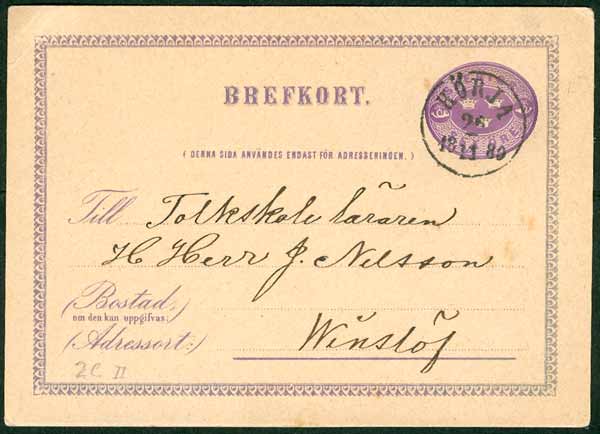 BREFKORT.
HÖRJA
26
11
18 80
( DENNA SIDA ANVÄNDES ENDAST FÖR ADRESSERINGEN. )
Till Folkskole läraren
H Herr J. Nilsson
(Bostad,)
om den kan uppgifvas:
Winslöf
(Adressort:)
2C II